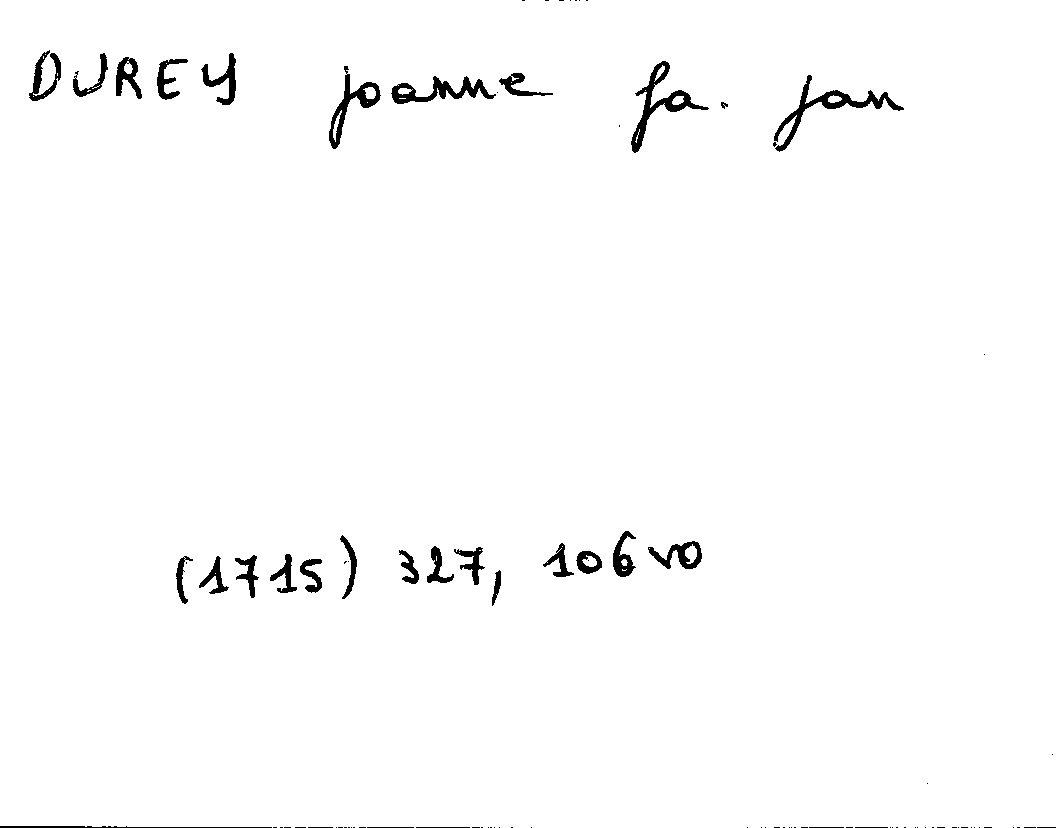 DUREY joanne fa. jan
(1715) 327, 106vo